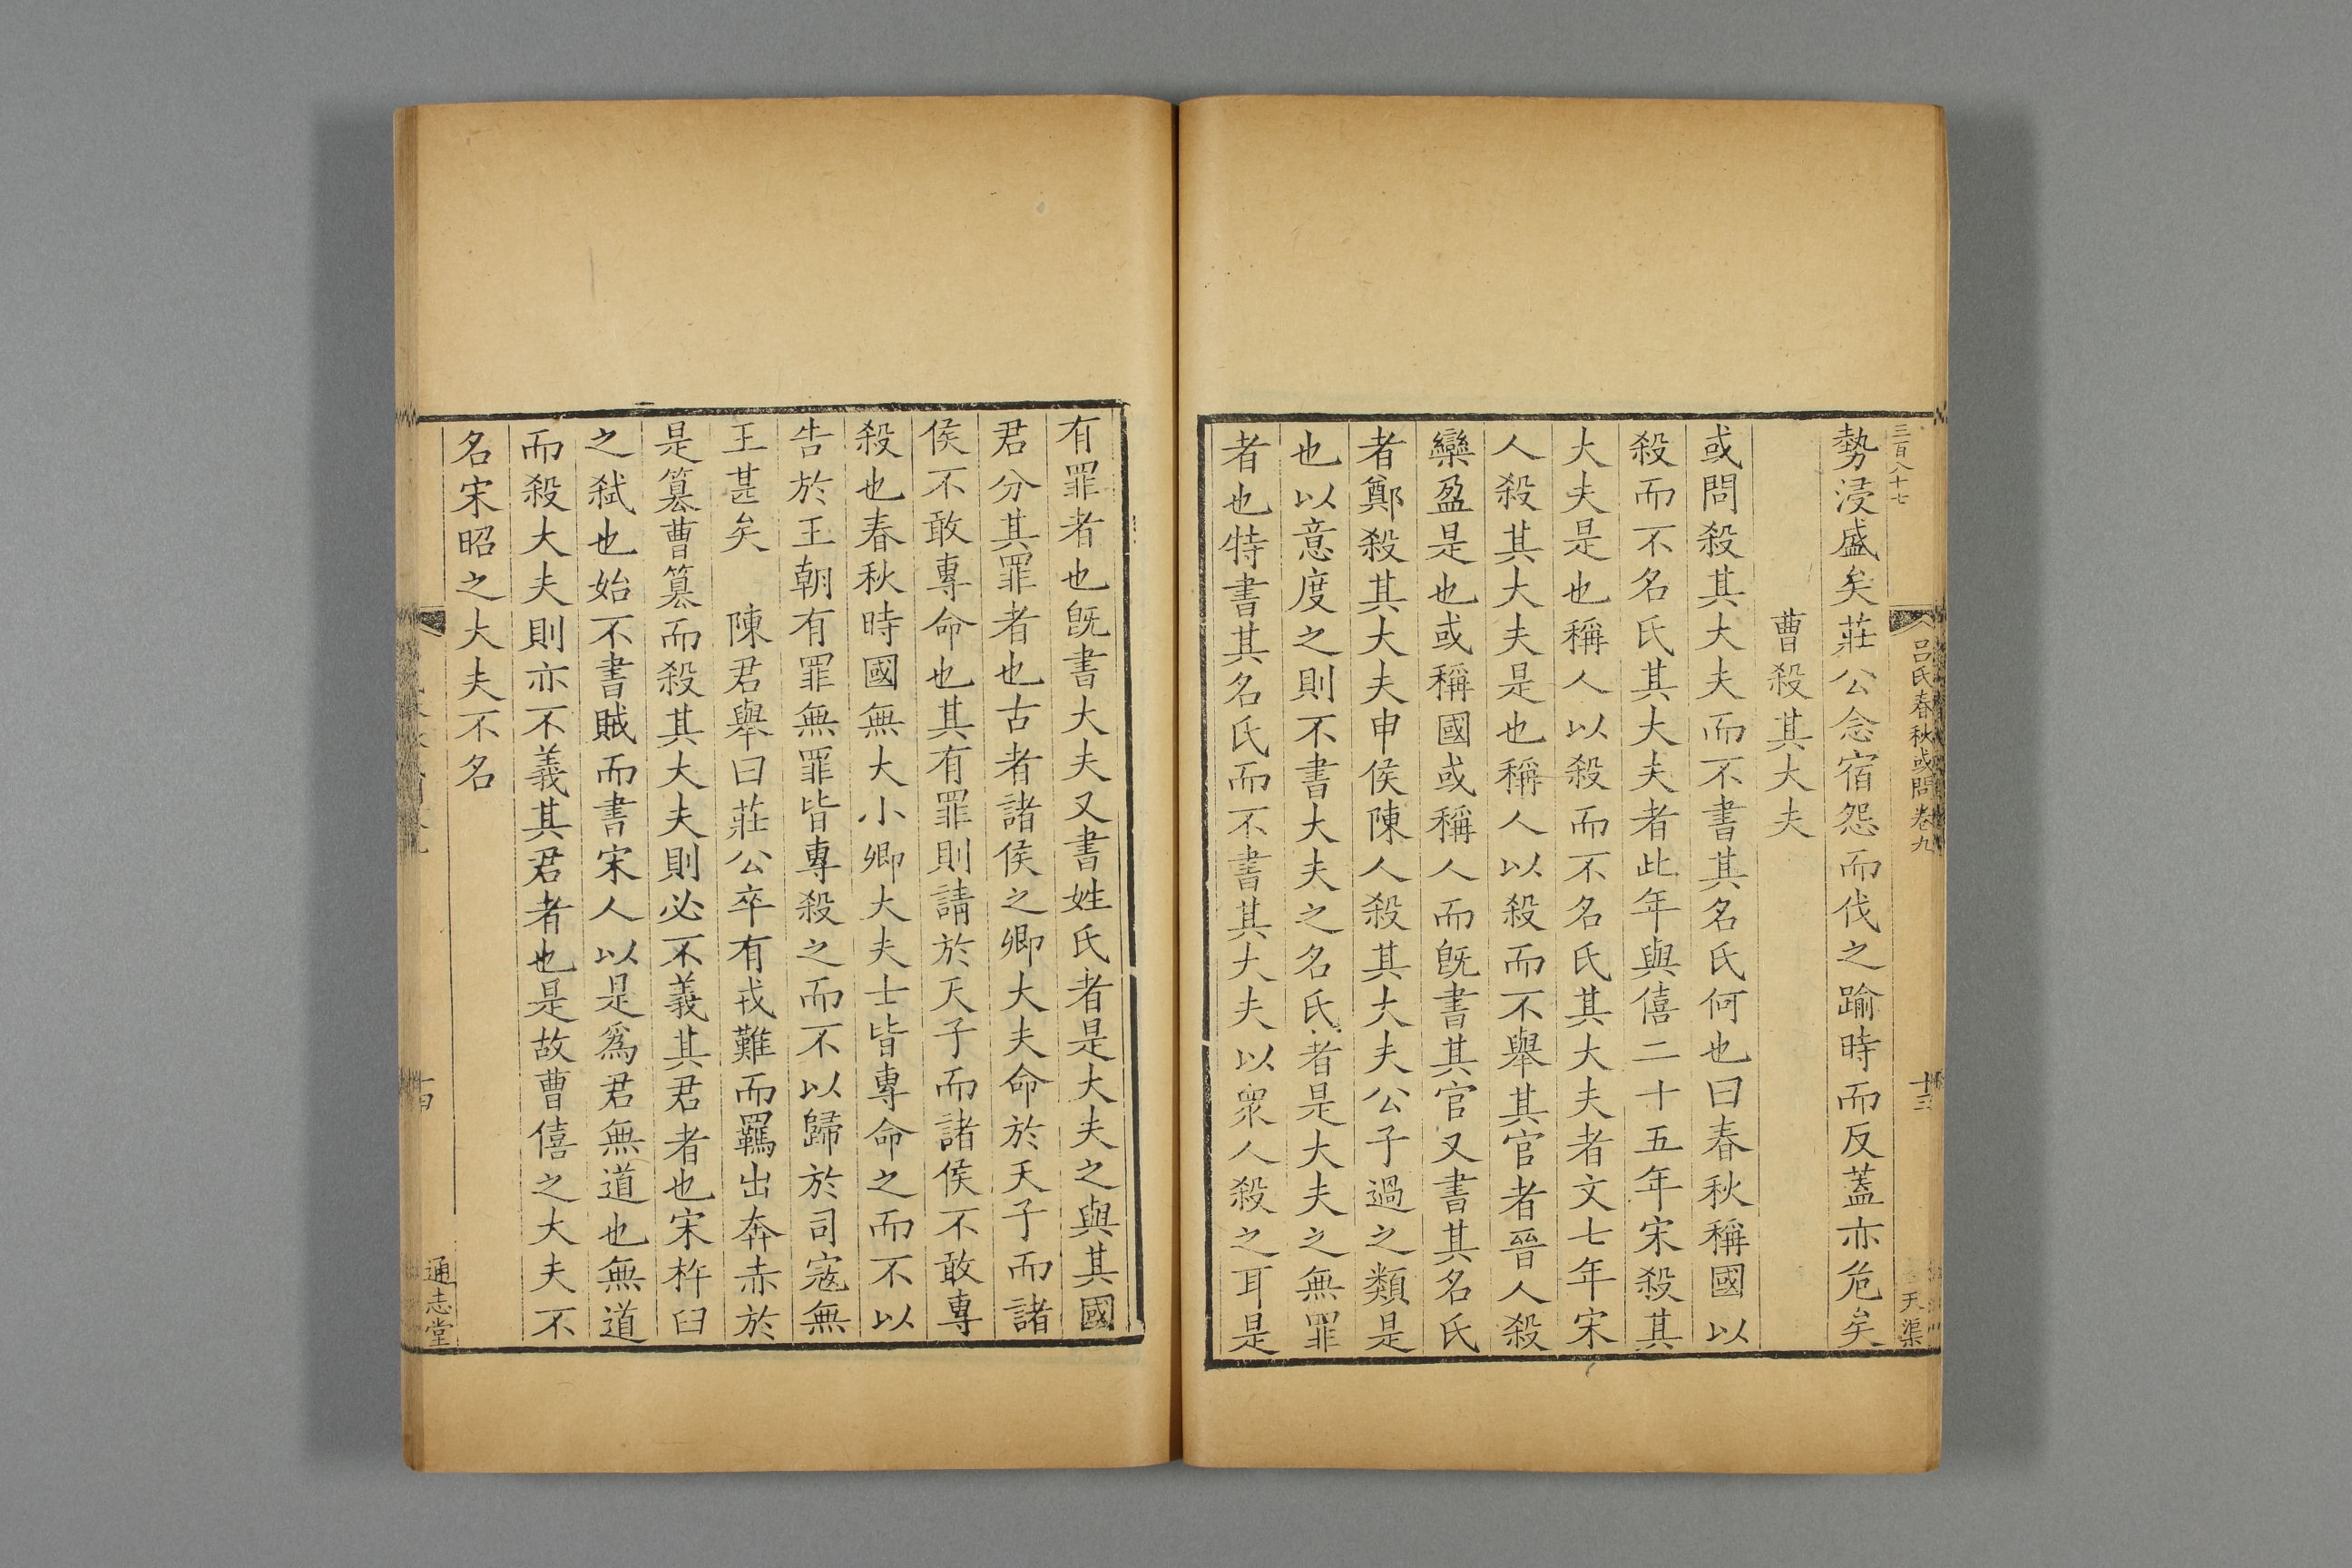 三百八十七
吕氏春秋或問卷九
十三
天渠
勢浸盛矣莊公念宿怨而伐之踰時而反蓋亦危矣
曹殺其大夫
或問殺其大夫而不書其名氏何也曰春秋稱國以
殺而不名氏其大夫者此年與僖二十五年宋殺其
大夫是也稱人以殺而不名氏其大夫者文七年宋
人殺其大夫是也稱人以殺而不舉其官者晉人殺
欒盈是也或稱國或稱人而旣書其官又書其名氏
者鄭殺其大夫申侯陳人殺其大夫公子過之類是
也以意度之則不書大夫之名氏者是大夫之無罪
者也特書其名氏而不書其大夫以衆人殺之耳是
有罪者也旣書大夫又書姓氏者是大夫之與其國
君分其罪者也古者諸侯之卿大夫命於天子而諸
侯不敢專命也其有罪則請於天子而諸侯不敢專
殺也春秋時國無大小卿大夫士皆專命之而不以
告於王朝有罪無罪皆專殺之而不以歸於司寇無
王甚矣 陳君舉曰莊公卒有戎難而羈出奔赤於
是簒曹簒而殺其大夫則必不義其君者也宋杵臼
之弑也始不書賊而書宋人以是爲君無道也無道
而殺大夫則亦不義其君者也是故曹僖之大夫不
名宋昭之大夫不名
十四
通志堂